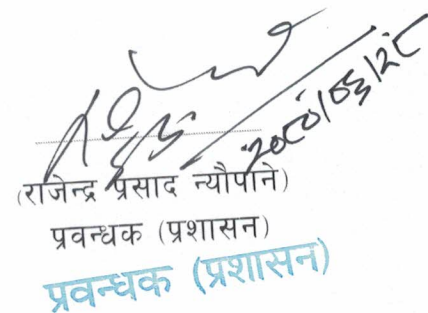 २०८०/०६/२८
(राजेन्द्र प्रसाद न्यौपाने)
प्रवन्धक (प्रशासन)
प्रवन्धक (प्रशासन)